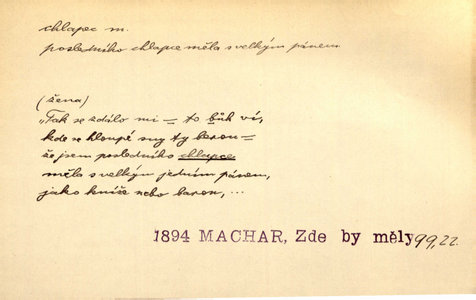 chlapec m.
posledního chlapce měla s velkým pánem
(žena)
„Tak se zdálo mi – to bůh ví,
kde se hloupé sny ty berou –
že jsem posledního chlapce
měla s velkým jedním pánem,
jako kníže nebo baron, ...
1894 MACHAR, Zde by měly 99, 22.